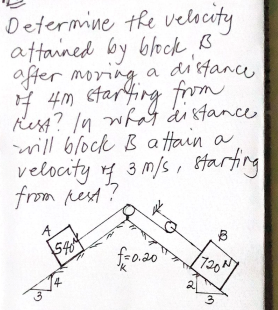 Determine the velocity
attained by block B
after moving a distance
of 4m starting from
rest? In what distance
will block B attain a
velocity of 3 m/s, starting
from rest?
A
B
540N
fk=0.20
720N
4
3
2
3